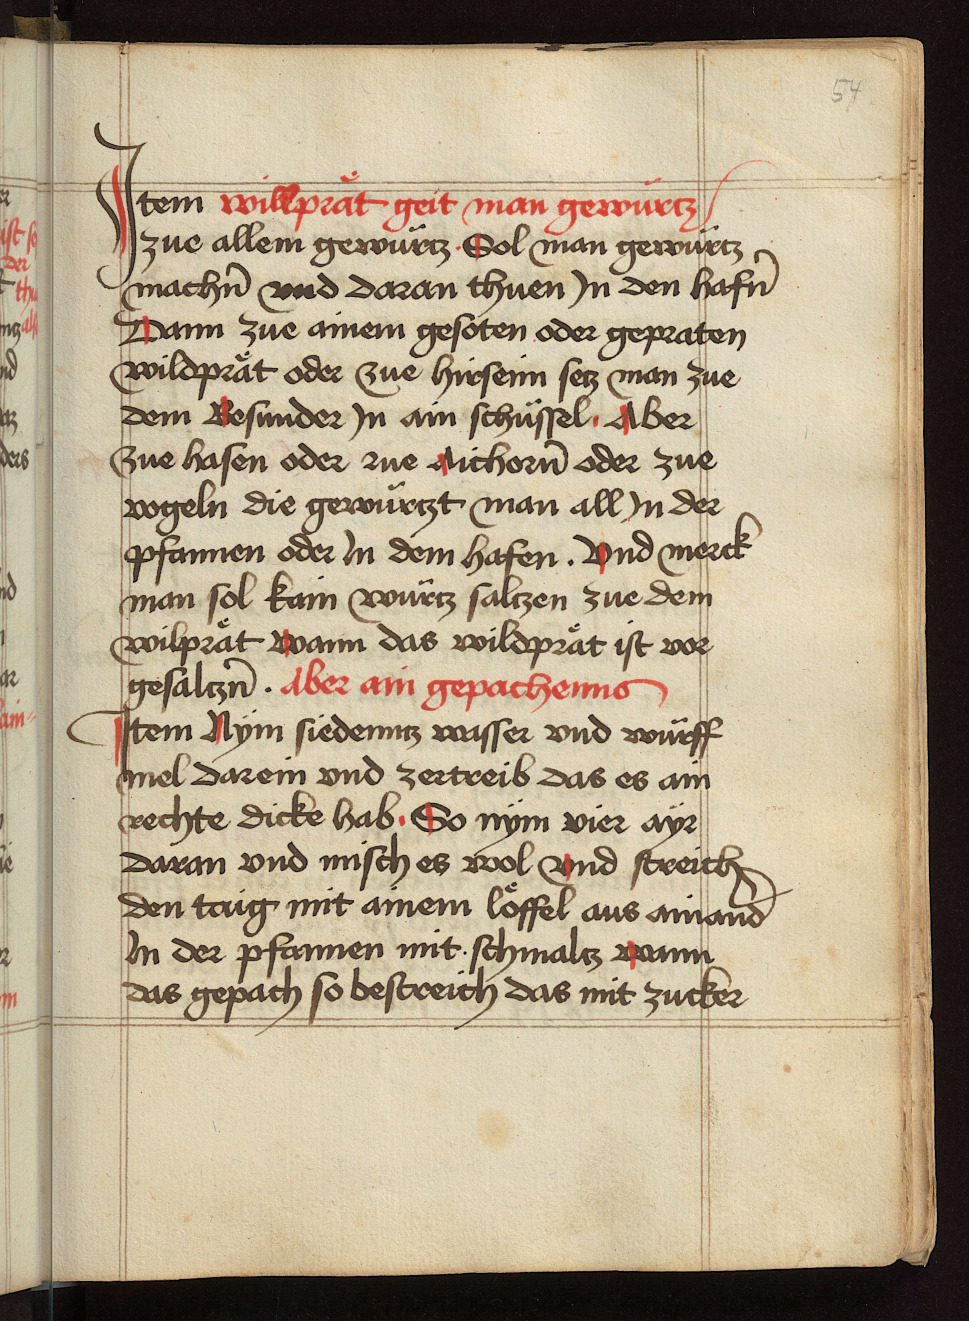 54
Item willprät geit man gewürtz
zue allem gewürtz. Sol man gewürtz
machn̄ vnd daran thuen Jn den hafn̄
Dann zue ainem gesoten oder gepraten
wildprät oder zue hirseim setz man zue
dem Besunder Jn ain schüssel. Aber
zue hasen oder zue Aichorn̄ oder zue
vogeln die gewürtzt man all Jn der
pfannen oder Jn dem hafen. Vnd merck
man sol kain würtz saltzen zue dem
wilprät wann das wildprät ist vor
gesaltzn̄. Aber ain gepachenns
Item Nÿm siedenntz wasser vnd würff
mel darein vnd zertreib das es ain
rechte dicke hab. So nÿm vier aÿr
daran vnd misch es wol vnd streich
den taig mit ainem löffel aus ainand̄
Jn der pfannen mit schmaltz wann
das gepach so bestreich das mit zucker